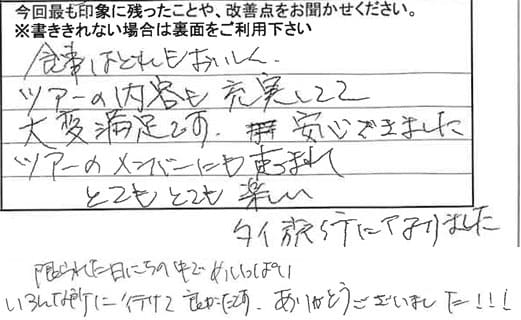 今回最も印象に残ったことや、改善点をお聞かせください。
※書ききれない場合は裏面をご利用下さい
食事はどれもおいしく、
ツアーの内容も充実してて
大変満足です。安心できました
ツアーのメンバーにも恵まれ
とてもとても楽しい
タイ旅行になりました
限られた日にちの中でめいっぱい
いろんな所に行けて良かったです。ありがとうございました!!!